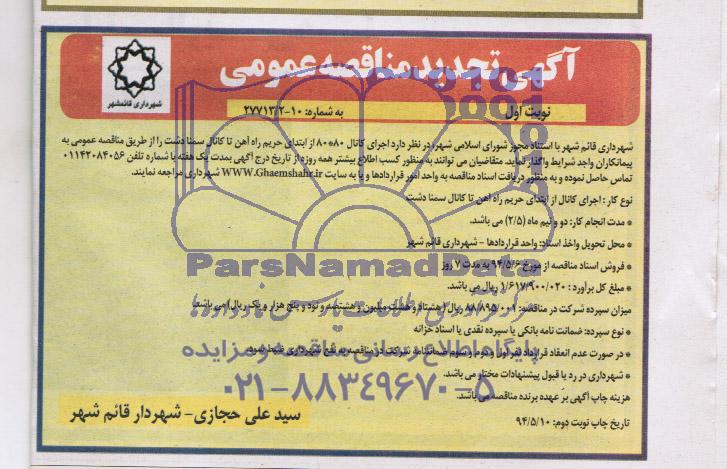 آگهی تجدید مناقصه عمومی
شهرداری قائمشهر
نوبت اول
به شماره: ۱۰-۲۷۷۱۳/۲
شهرداری قائم شهر با استناد مجوز شورای اسلامی شهر، در نظر دارد اجرای کانال ۸۰*۸۰ از ابتدای حریم راه آهن تا کانال سمنا دشت را از طریق مناقصه عمومی به
پیمانکاران واجد شرایط واگذار نماید. متقاضیان می توانند به منظور کسب اطلاع بیشتر همه روزه از تاریخ درج آگهی بمدت یک هفته با شماره تلفن ۰۱۱۴۲۰۸۴۰۵۶
تماس حاصل نموده و به منظور دریافت اسناد مناقصه به واحد امور قراردادها و یا به سایت WWW.Ghaemshahr.ir شهرداری مراجعه نمایند.
نوع کار: اجرای کانال از ابتدای حریم راه آهن تا کانال سمنا دشت
* مدت انجام کار: دو و نیم ماه (۲/۵) می باشد.
* محل تحویل واخذ اسناد: واحد قراردادها - شهرداری قائم شهر
* فروش اسناد مناقصه از مورخ ۹۴/۵/۶ به مدت ۷ روز
* مبلغ کل برآورد: ۱/۶۱۷/۹۰۰/۰۲۰ ریال می باشد.
میزان سپرده شرکت در مناقصه: ۸۸/۸۹۵/۰۰۱ ریال (هشتاد و هشت میلیون و هشتصد و نود و پنج هزار و یک ریال) می باشد.
* نوع سپرده: ضمانت نامه بانکی یا سپرده نقدی یا اسناد خزانه
* در صورت عدم انعقاد قرارداد نفر اول و دوم و سوم ضمانتنامه شرکت در مناقصه به نفع شهرداری ضبط
* شهرداری در رد یا قبول پیشنهادات مختار می باشد.
هزینه چاپ آگهی بر عهده برنده مناقصه می باشد.
تاریخ چاپ نوبت دوم: ۹۴/۵/۱۰
سید علی حجازی - شهردار قائم شهر
ParsNamadData
پایگاه اطلاع رسانی مناقصه و مزایده
۰۲۱-۸۸۳۴۹۶۷۰-۵